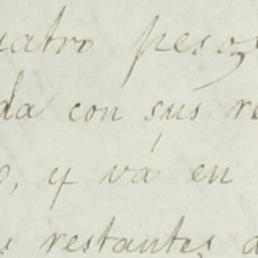 uatro pesos
da con sus re
o, y vá en
s restantes d